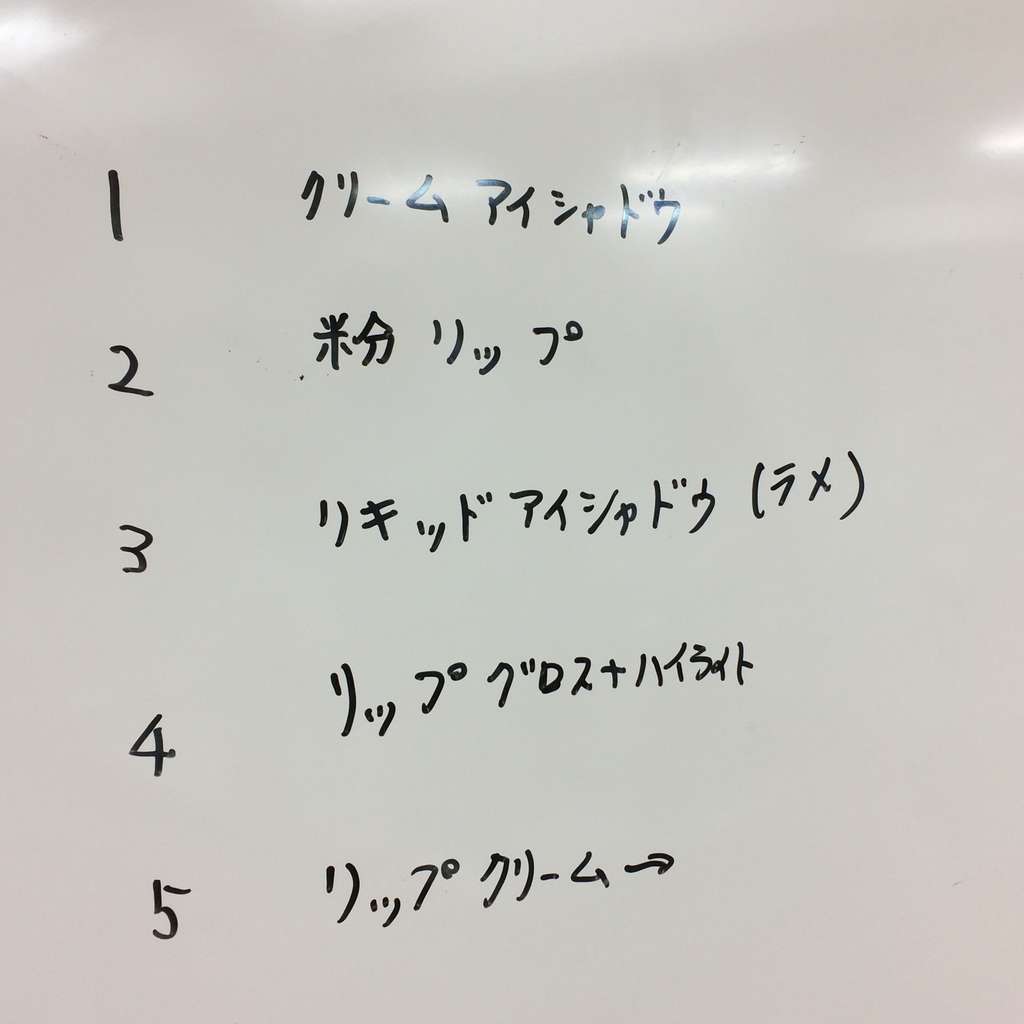 1 クリーム アイシャドウ
2 粉 リップ
3 リキッド アイシャドウ (ラメ)
4 リップ グロス+ハイライト
5 リップ クリーム→